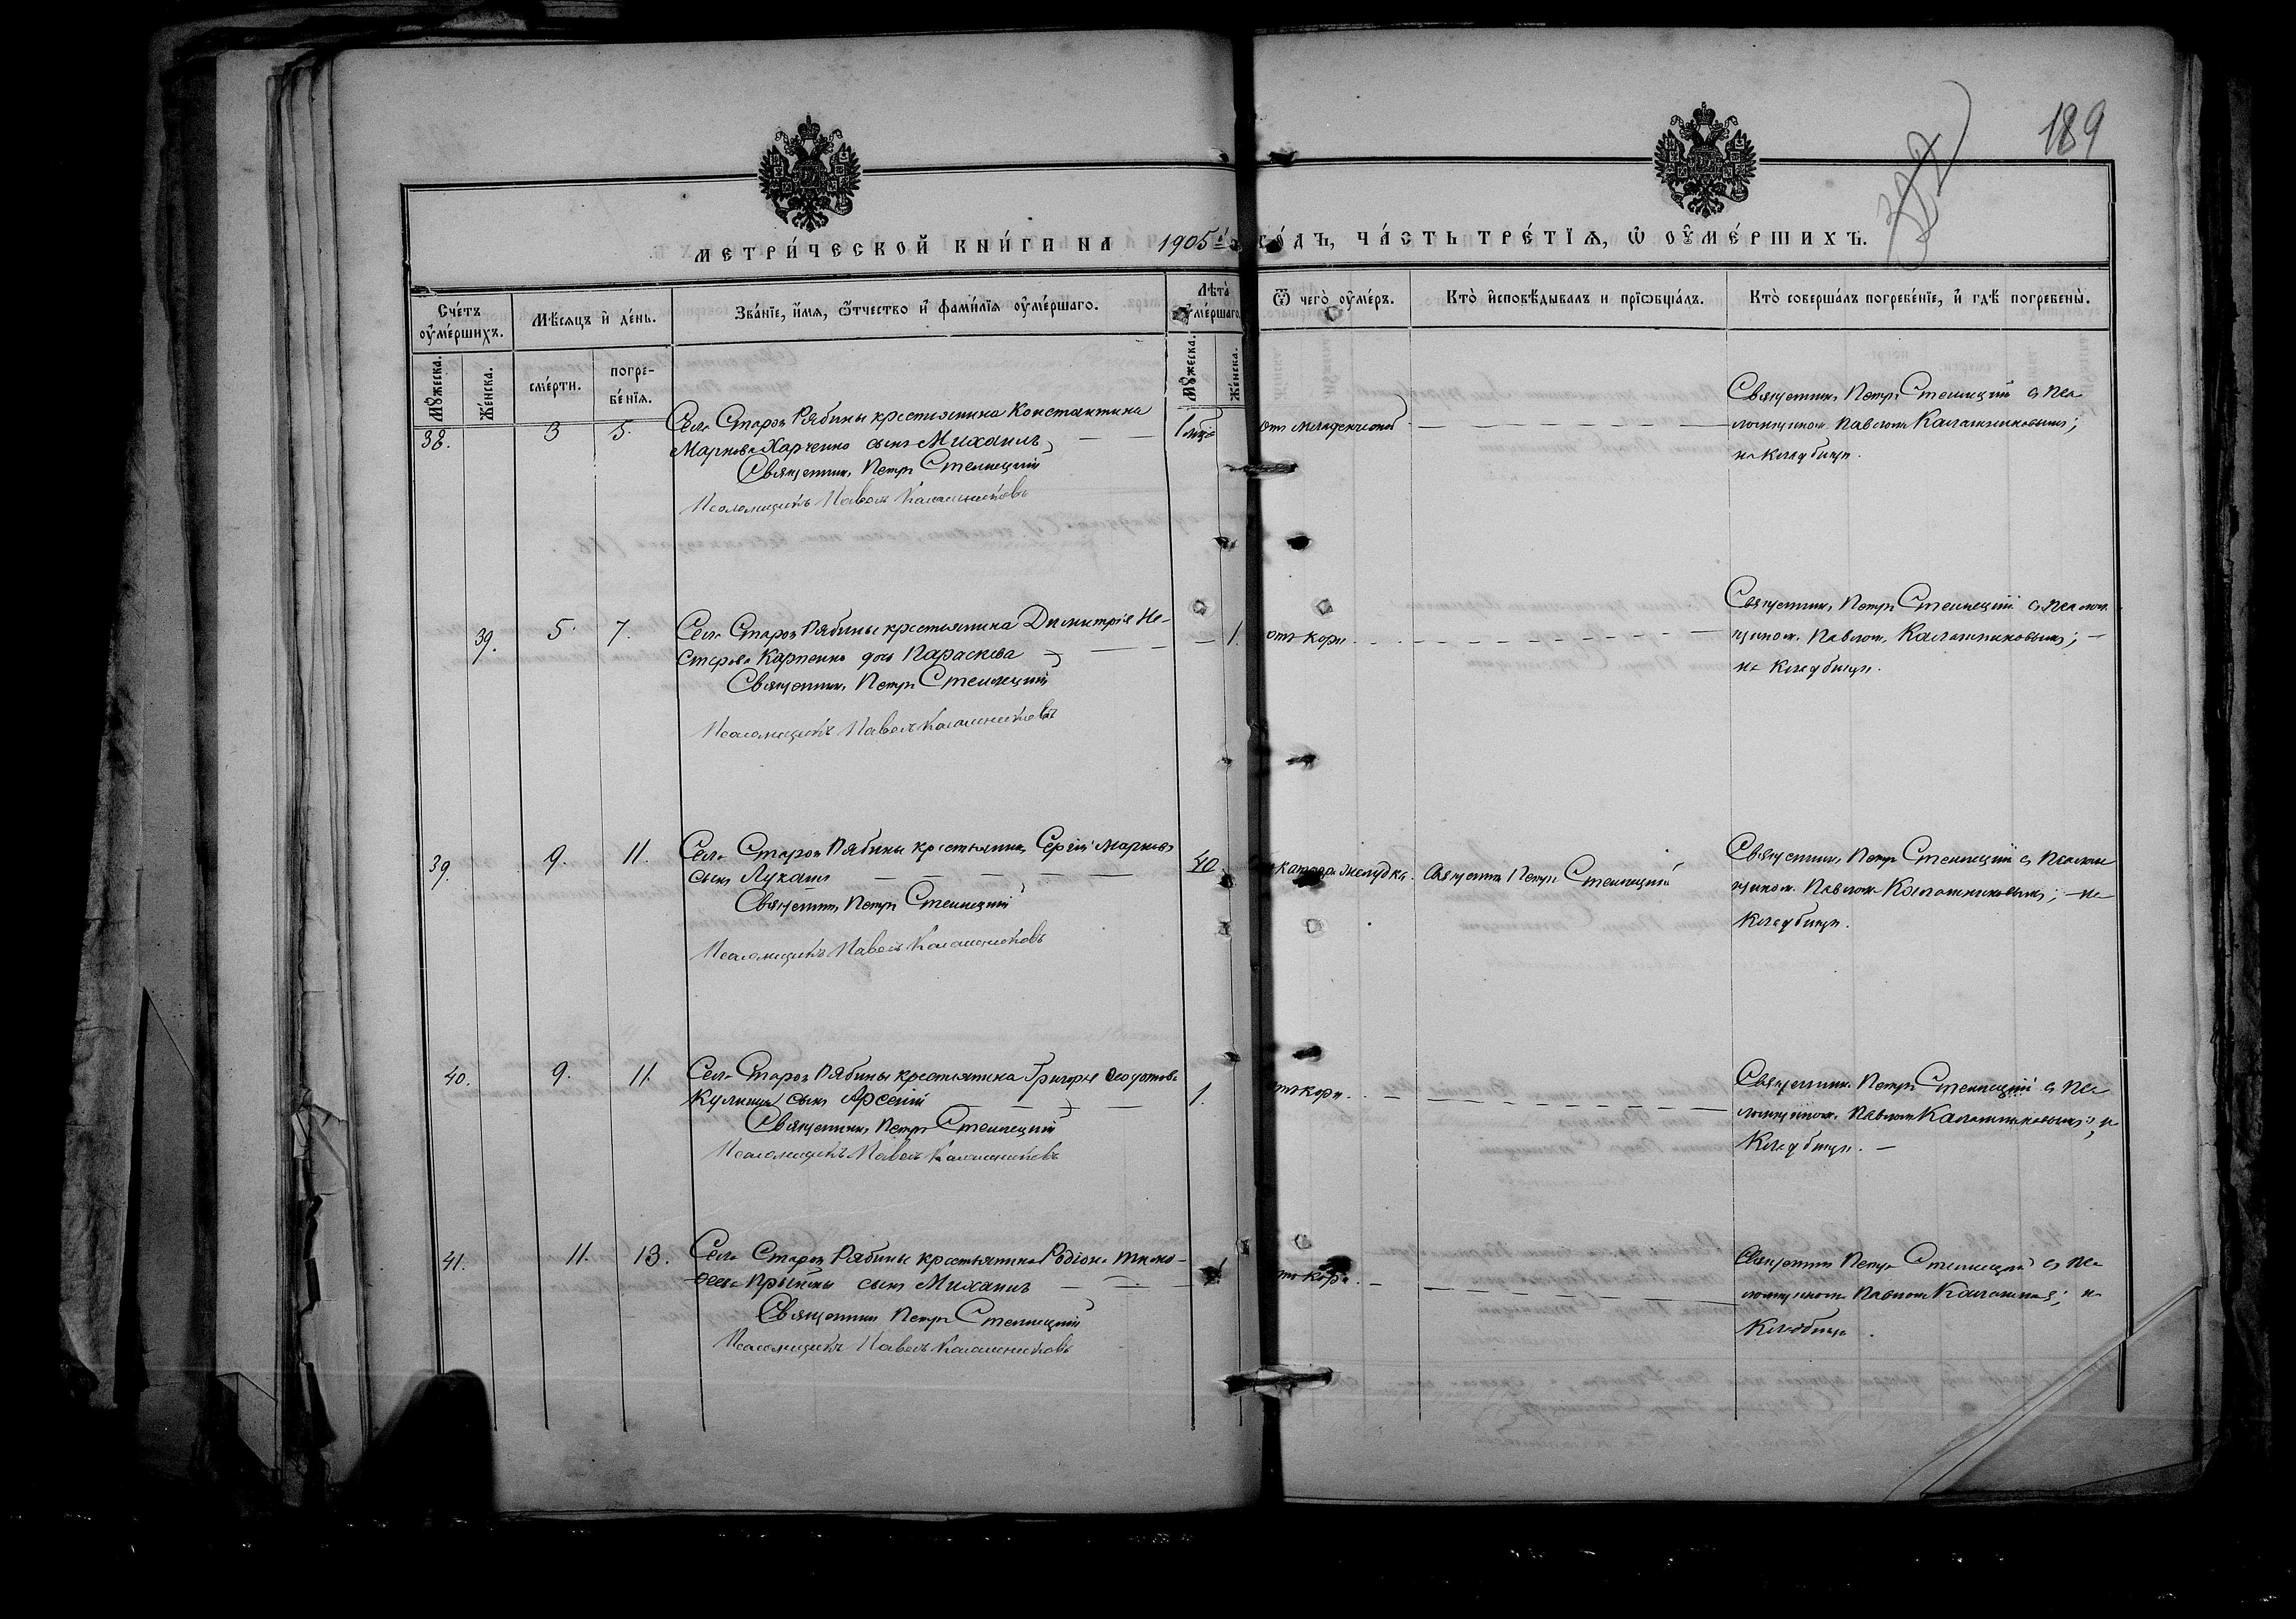 189
МЕТРИ́ЧЕСКОЙ КНИ́ГИ НА 1905й ГО́ДЪ, ЧА́СТЬ ТРЕ́ТІѦ, Ѡ҆ ОУ҆МЕ́РШИХЪ.
Сче́тъ оу҆ме́ршихъ.
Мѣ́сяцъ и҆ де́нь.
Зва́нїе, и҆́мя, ѻ҆́тчество и҆ фами́лїя оу҆ме́ршаго.
Лѣта̀ оу҆ме́ршаго
Ѿ чего̀ оу҆ме́ръ.
Кто̀ и҆сповѣ́дывалъ и прїѡбща́лъ.
Кто̀ соверша́лъ погребе́нїе, и҆ гдѣ̀ погребены̀.
Мꙋ́жеска.
Же́нска.
сме́рти.
погре-
бе́нїя.
Мꙋ́жеска.
Же́нска.
38. 3 5. Села Старой Рябины крестьянина Константина
Маркова Харченко сынъ Михаилъ
Священникъ Петръ Стеллецкий
Псаломщикъ Павелъ Калашниковъ
отъ младенческой
Священникъ Петръ Стеллецкий съ пса
ломщикомъ Павломъ Калашниковымъ;
на кладбищѣ.
39. 5. 7. Села Старой Рябины крестьянина Димитрія Не-
стерова Карпенко дочь Параскева
Священникъ Петръ Стеллецкий
Псаломщикъ Павелъ Калашниковъ
1. отъ кори.
Священникъ Петръ Стеллецкій съ псалом
щикомъ Павломъ Калашниковымъ;
на кладбищѣ.
39. 9. 11. Села Старой Рябины крестьянинъ Сергій Марковъ
сынъ Лукаш
Священникъ Петръ Стеллецкий
Псаломщикъ Павелъ Калашниковъ
40 катара желудка. Священникъ Петръ Стеллецкий
Священникъ Петръ Стеллецкий съ псалом
щикомъ Павломъ Калашниковымъ; на
кладбищѣ.
40. 9. 11. Села Старой Рябины крестьянина Григорія
Кулиша сынъ Арсеній
Священникъ Петръ Стеллецкий
Псаломщикъ Павелъ Калашниковъ
1. отъ кори.
Священникъ Петръ Стеллецкий съ пса
ломщикомъ Павломъ Калашниковымъ; на
кладбищѣ.
41. 11. 13. Села Старой Рябины крестьянина Родіона Тимо-
сынъ Михаилъ
Священникъ Петръ Стеллецкий
Псаломщикъ Павелъ Калашниковъ
отъ кори.
Священникъ Петръ Стеллецкий съ пса
ломщикомъ Павломъ; на
кладбищѣ.